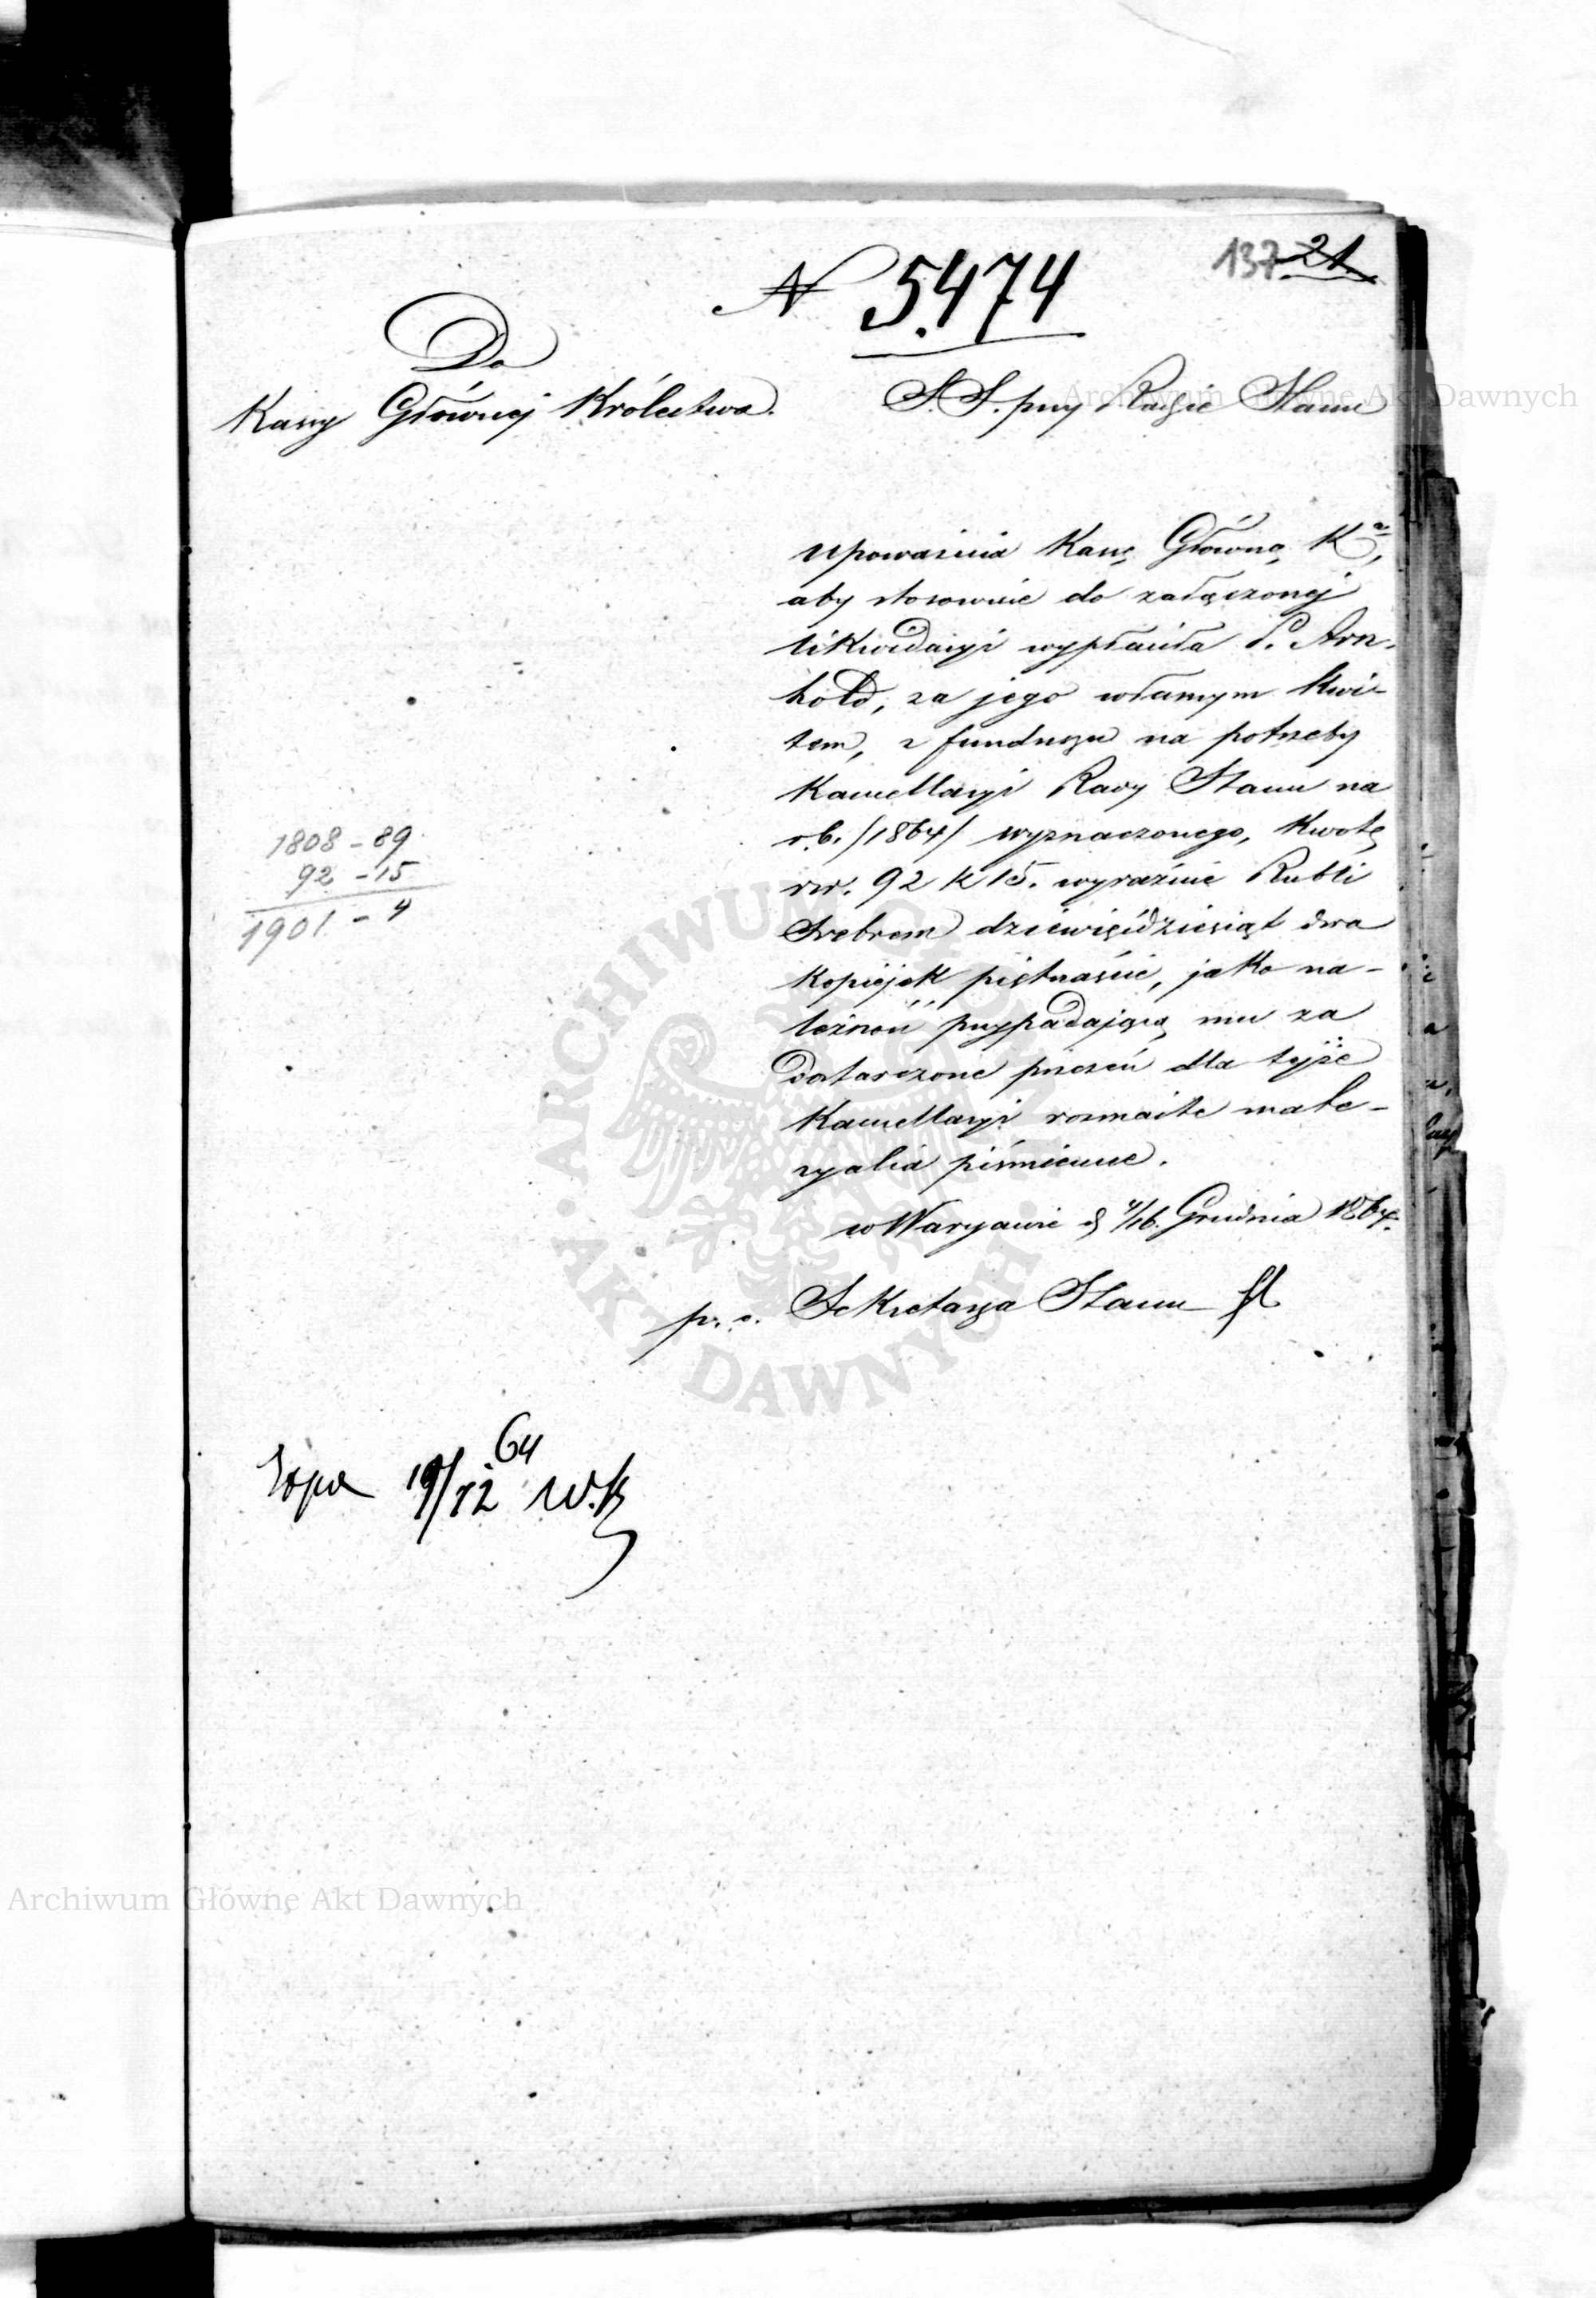 137 21.
N 5474
Do
Kassy Głównej Królestwa.
S. S. przy Radzie Stanu
upoważnia Kassę Główną Kr̃,
aby stosownie do załączonej
likwidacyi wypłaciła P. Arn-
hold, za jego własnym kwi-
tem, z funduszu na potrzeby
Kancellaryi Rady Stanu na
r.b. /1864/ wyznaczonego, kwotę
rsr. 92 k 15. wyraźnie Rubli
Srebrem dziewięćdziesiąt dwa
kopiejek piętnaście, jako na-
leżność przypadającą mu za
dostarczone przezeń dla tejże
Kancellaryi rozmaite mate-
ryalia piśmienne.
w Warszawie d 4/16. Grudnia 1864.
p. o. Sekretarza Stanu
1808 - 89
92 - 15
1901 - 4
19/12 64 W.K
Archiwum Główne Akt Dawnych
ARCHIWUM GŁÓWNE AKT DAWNYCH
Archiwum Główne Akt Dawnych